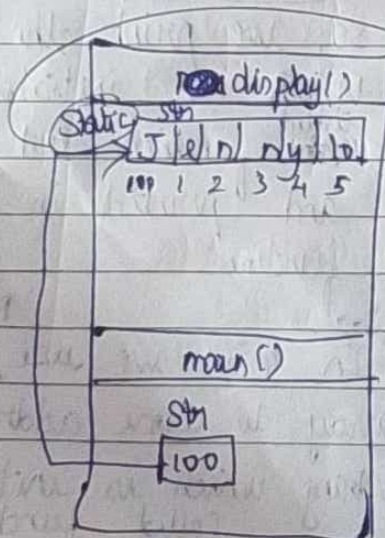 display()
Static str
J e n n y \0
100 1 2 3 4 5
main()
Str
100